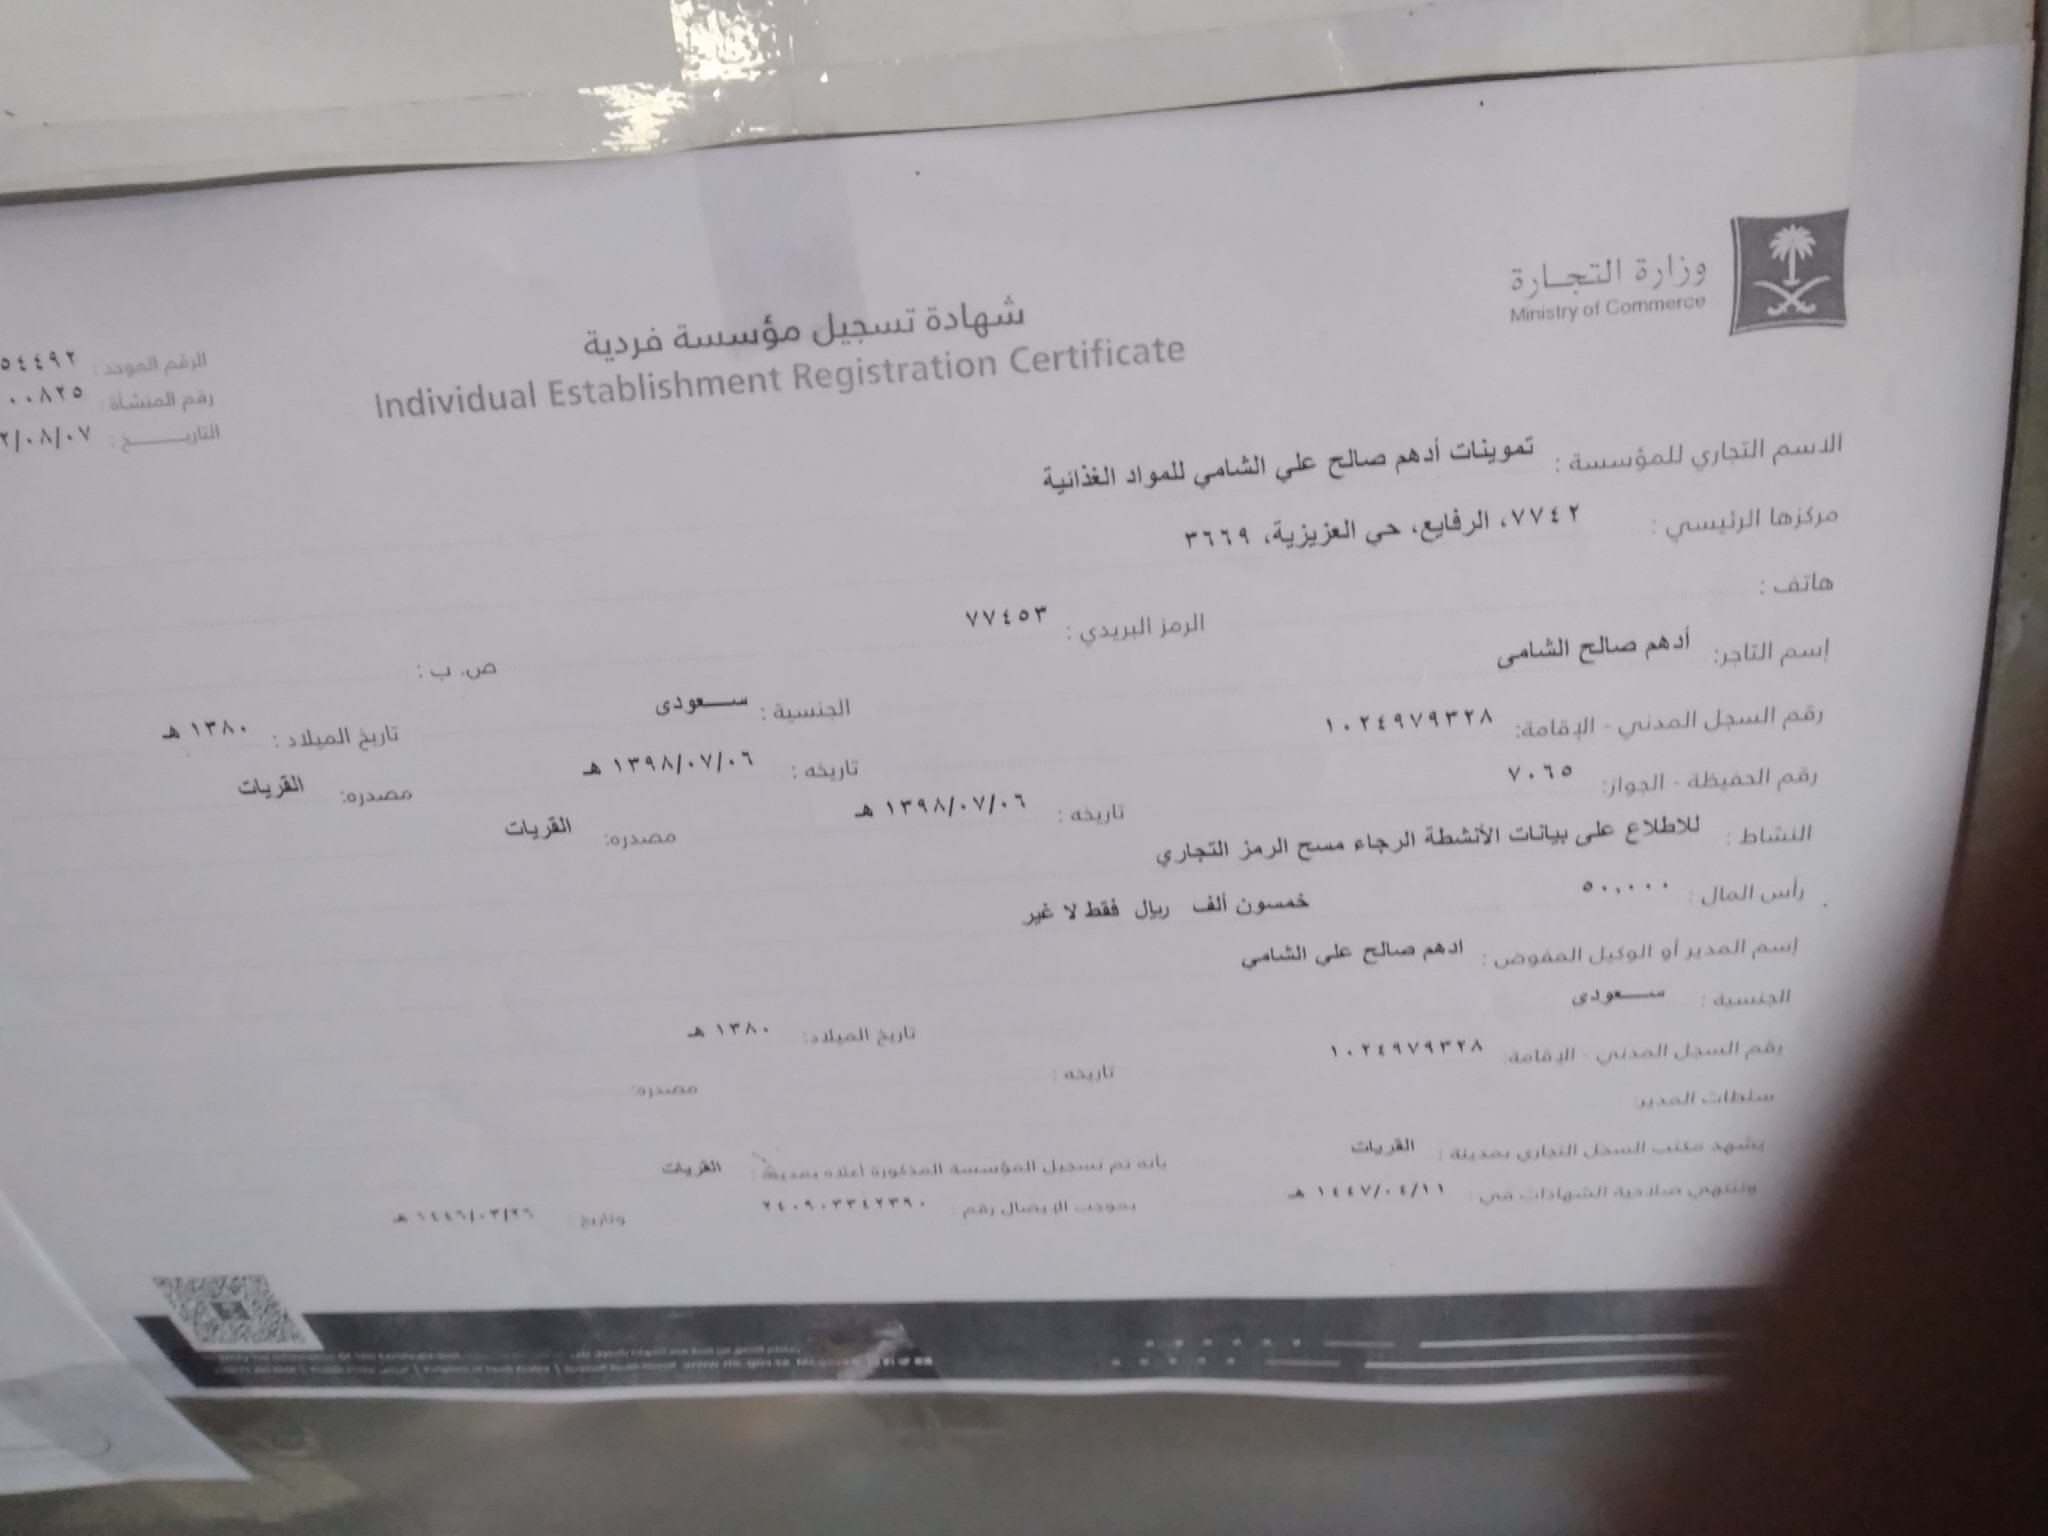 وزارة التجارة
Ministry of Commerce
شهادة تسجيل مؤسسة فردية
Individual Establishment Registration Certificate
الرقم الموحد : ٥٤٤٩٢
رقم المنشأة : ٠٠٨٢٥
التاريـــــخ : ٢/٠٨/٠٧
الاسم التجاري للمؤسسة : تموينات أدهم صالح علي الشامي للمواد الغذائية
مركزها الرئيسي : ٧٧٤٢، الرفايع، حي العزيزية، ٣٦٦٩
هاتف : الرمز البريدي : ٧٧٤٥٣ ص. ب :
إسم التاجر: أدهم صالح الشامى الجنسية : سـعودى تاريخ الميلاد : ١٣٨٠ هـ
رقم السجل المدني - الإقامة: ١٠٢٤٩٧٩٣٢٨ تاريخه : ١٣٩٨/٠٧/٠٦ هـ مصدره: القريات
رقم الحفيظة - الجواز: ٧٠٦٥ تاريخه : ١٣٩٨/٠٧/٠٦ هـ مصدره: القريات
النشاط : للاطلاع على بيانات الأنشطة الرجاء مسح الرمز التجاري
رأس المال : ٥٠,٠٠٠ خمسون ألف ريال فقط لا غير
إسم المدير أو الوكيل المفوض : ادهم صالح علي الشامي
الجنسية : سـعودى تاريخ الميلاد: ١٣٨٠ هـ
رقم السجل المدني - الإقامة: ١٠٢٤٩٧٩٣٢٨ تاريخه : مصدره:
سلطات المدير:
يشهد مكتب السجل التجاري بمدينة : القريات بأنه تم تسجيل المؤسسة المذكورة أعلاه بمدينة : القريات
وتنتهي صلاحية الشهادات في : ١٤٤٧/٠٤/١١ هـ بموجب الإيصال رقم : ٢٤٠٩٠٣٣٤٢٣٩٠ وتاريخ : ١٤٤٦/٠٣/٢٦ هـ